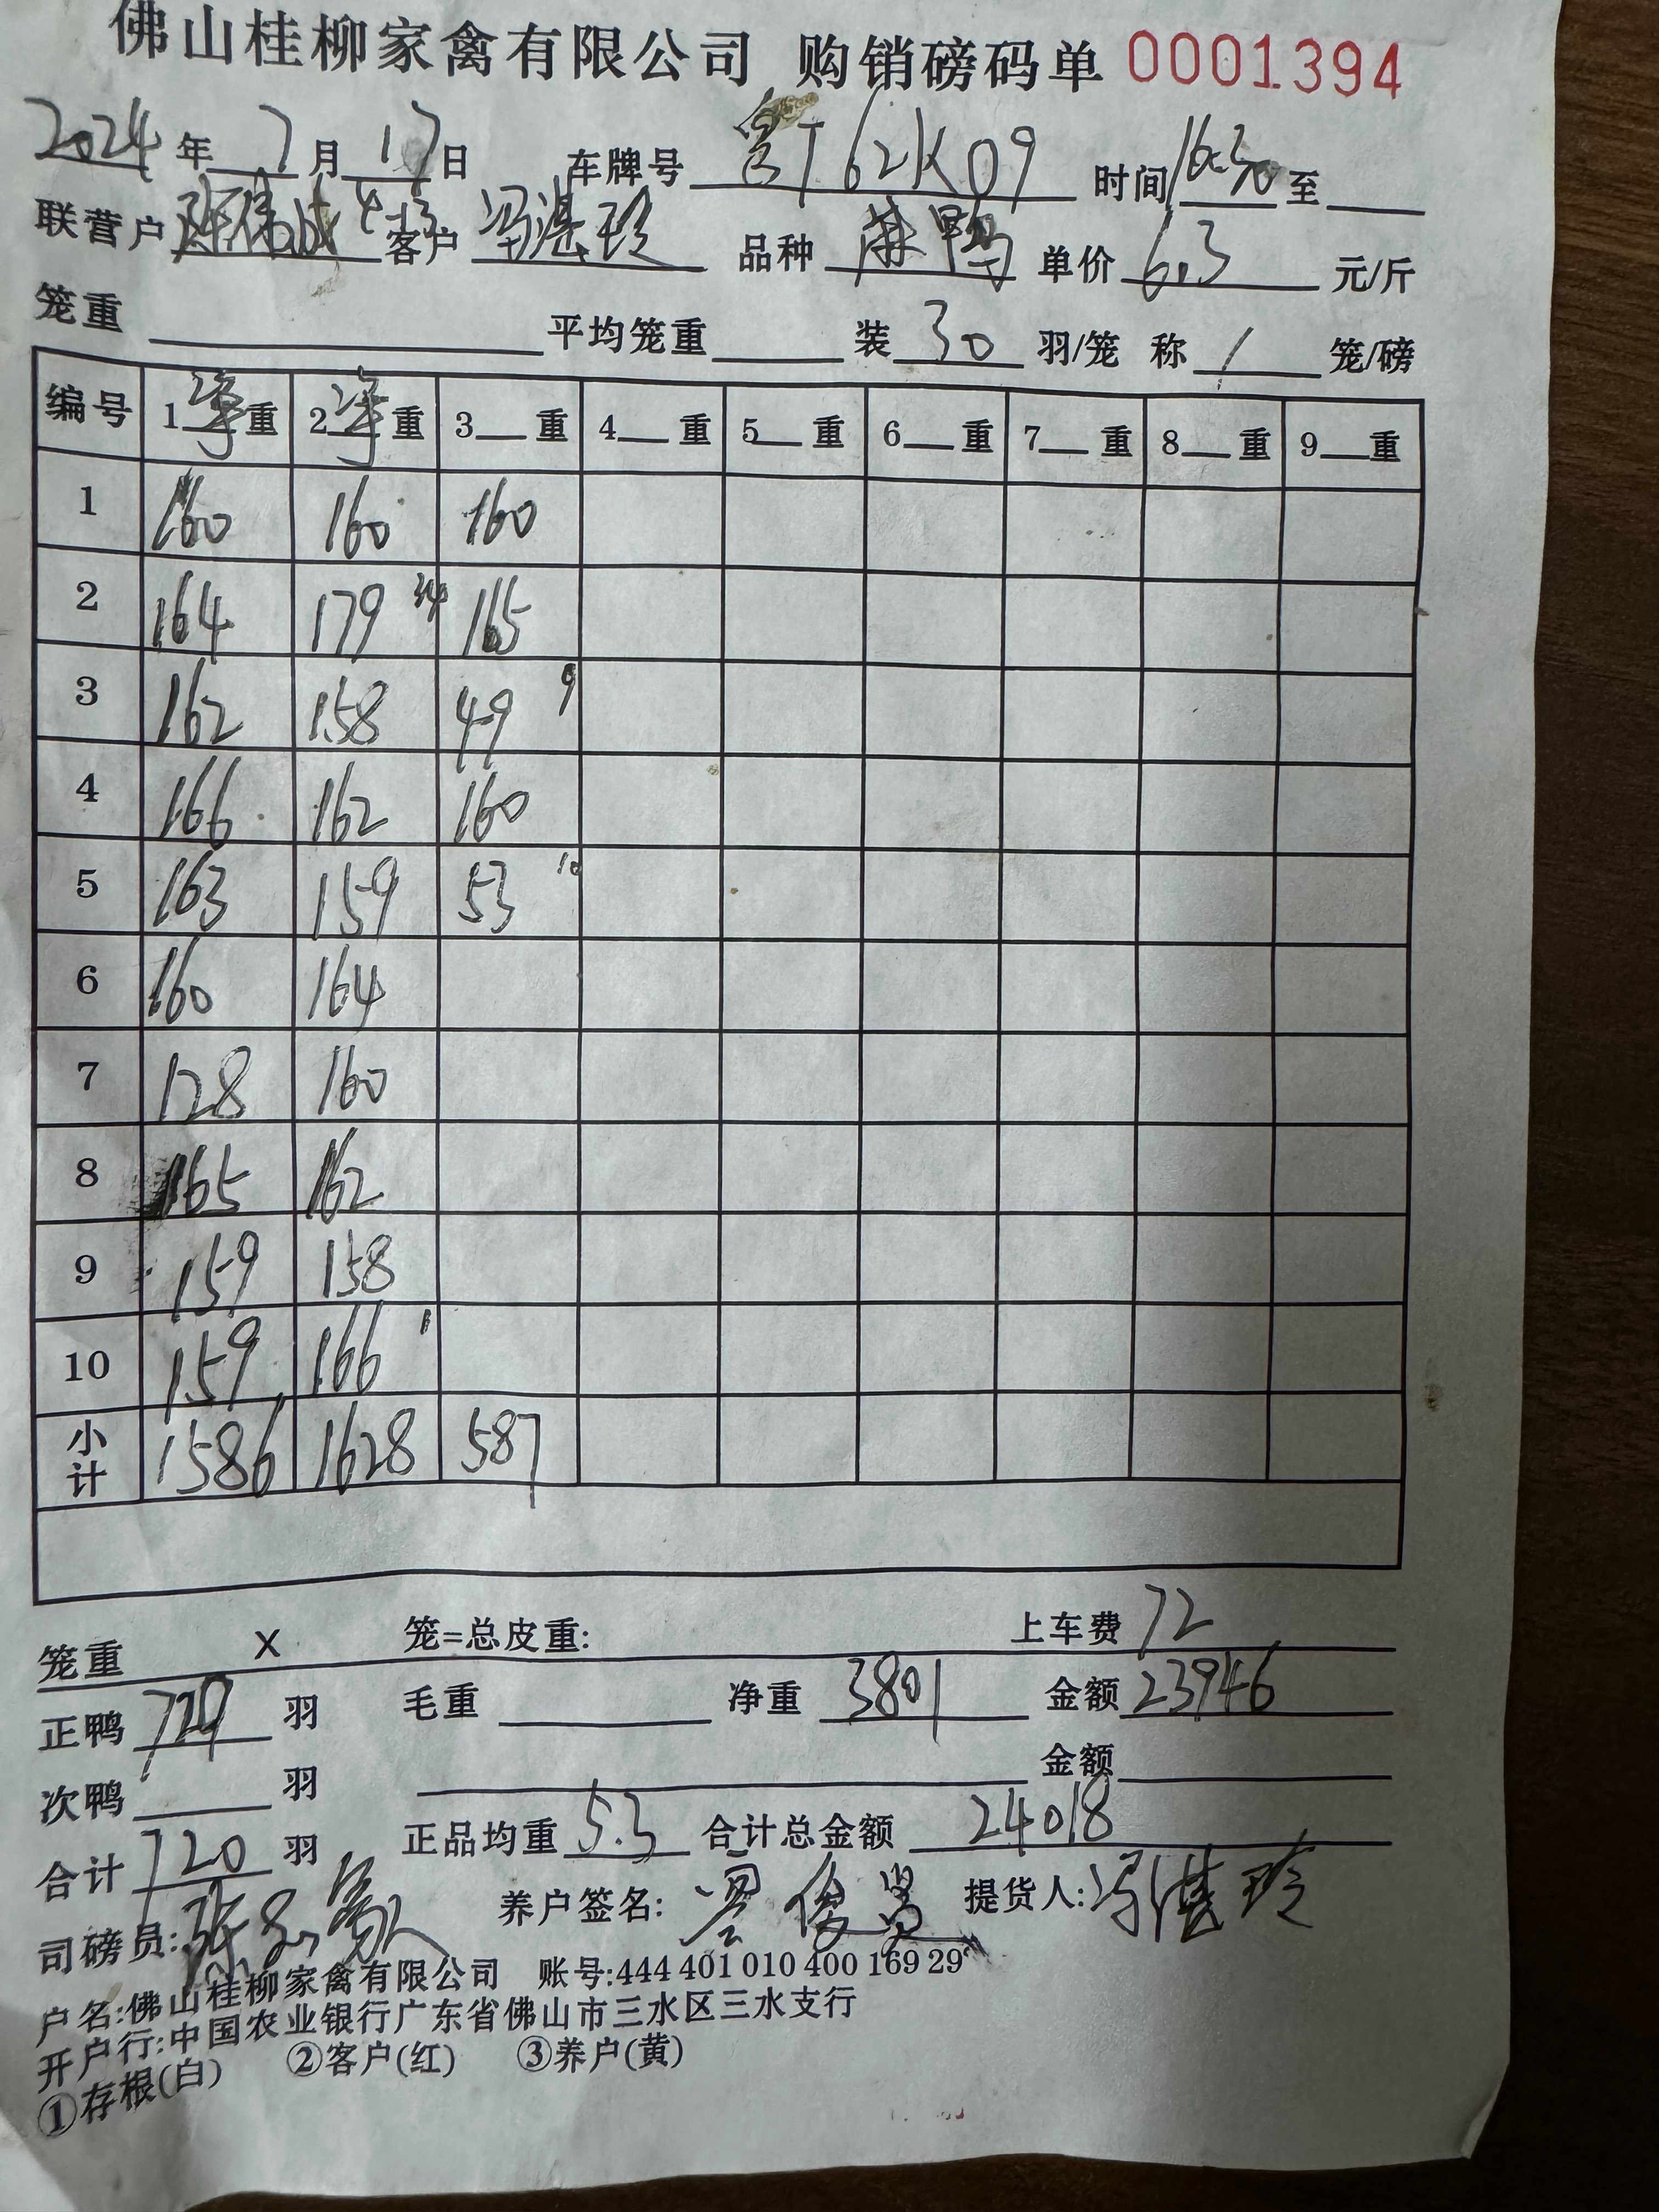 佛山桂柳家禽有限公司 购销磅码单 0001394
2024年7月17日 车牌号 T62K09 时间16:30至
联营户 陈伟成 客户 冯湛玲 品种 麻鸭 单价6.3元/斤
笼重 平均笼重 装30羽/笼 称1笼/磅
编号 1净重 2净重 3重 4重 5重 6重 7重 8重 9重
1 160 160 160
2 164 179 34 165
3 162 158 49 9
4 166 162 160
5 163 159 53 10
6 160 164
7 128 160
8 165 162
9 159 158
10 159 166
小计 1586 1628 587
笼重 X 笼=总皮重: 上车费72
正鸭 羽 毛重 净重 3801 金额23946
次鸭 羽 金额
合计720羽 正品均重5.3 合计总金额 24018
司磅员: 养户签名: 提货人:冯湛玲
户名:佛山桂柳家禽有限公司 账号:444 401 010 400 169 29
开户行:中国农业银行广东省佛山市三水区三水支行
①存根(白) ②客户(红) ③养户(黄)